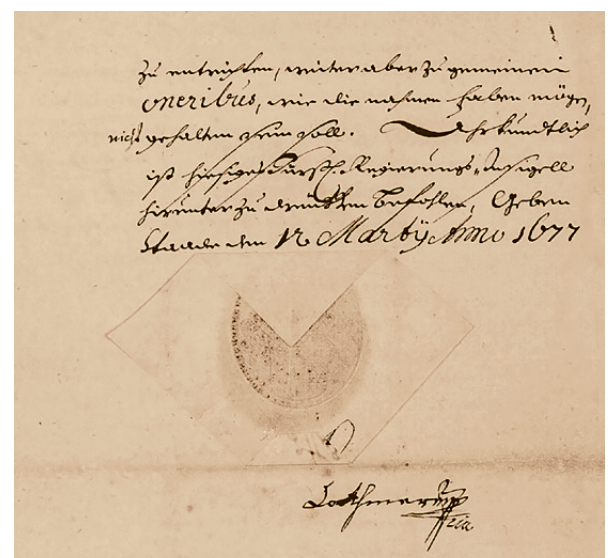 zu entrichten, weiter aber zu gemeinen
oneribus, wie die nahmen haben mögen,
nicht gehalten sein soll. Uhrkundtlich
ist hiesiges Fürstl. Regierungs-Insigell
hirunter zu drücken befohlen, Geben
Staade den 12 Martÿ Anno 1677